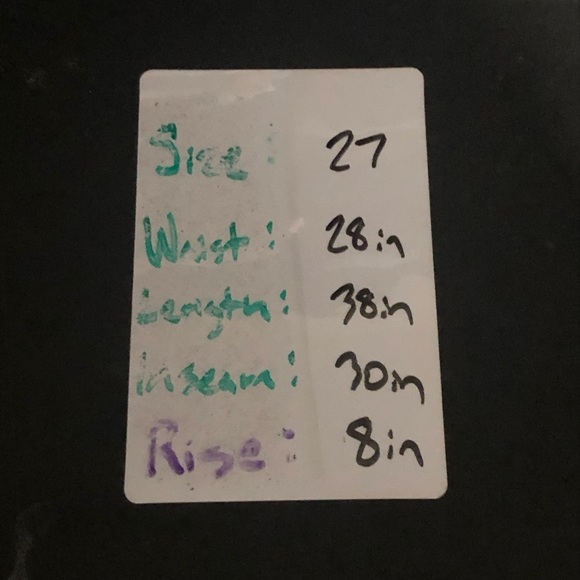 Size: 27
Waist: 28in
Length: 38in
Inseam: 30in
Rise: 8in